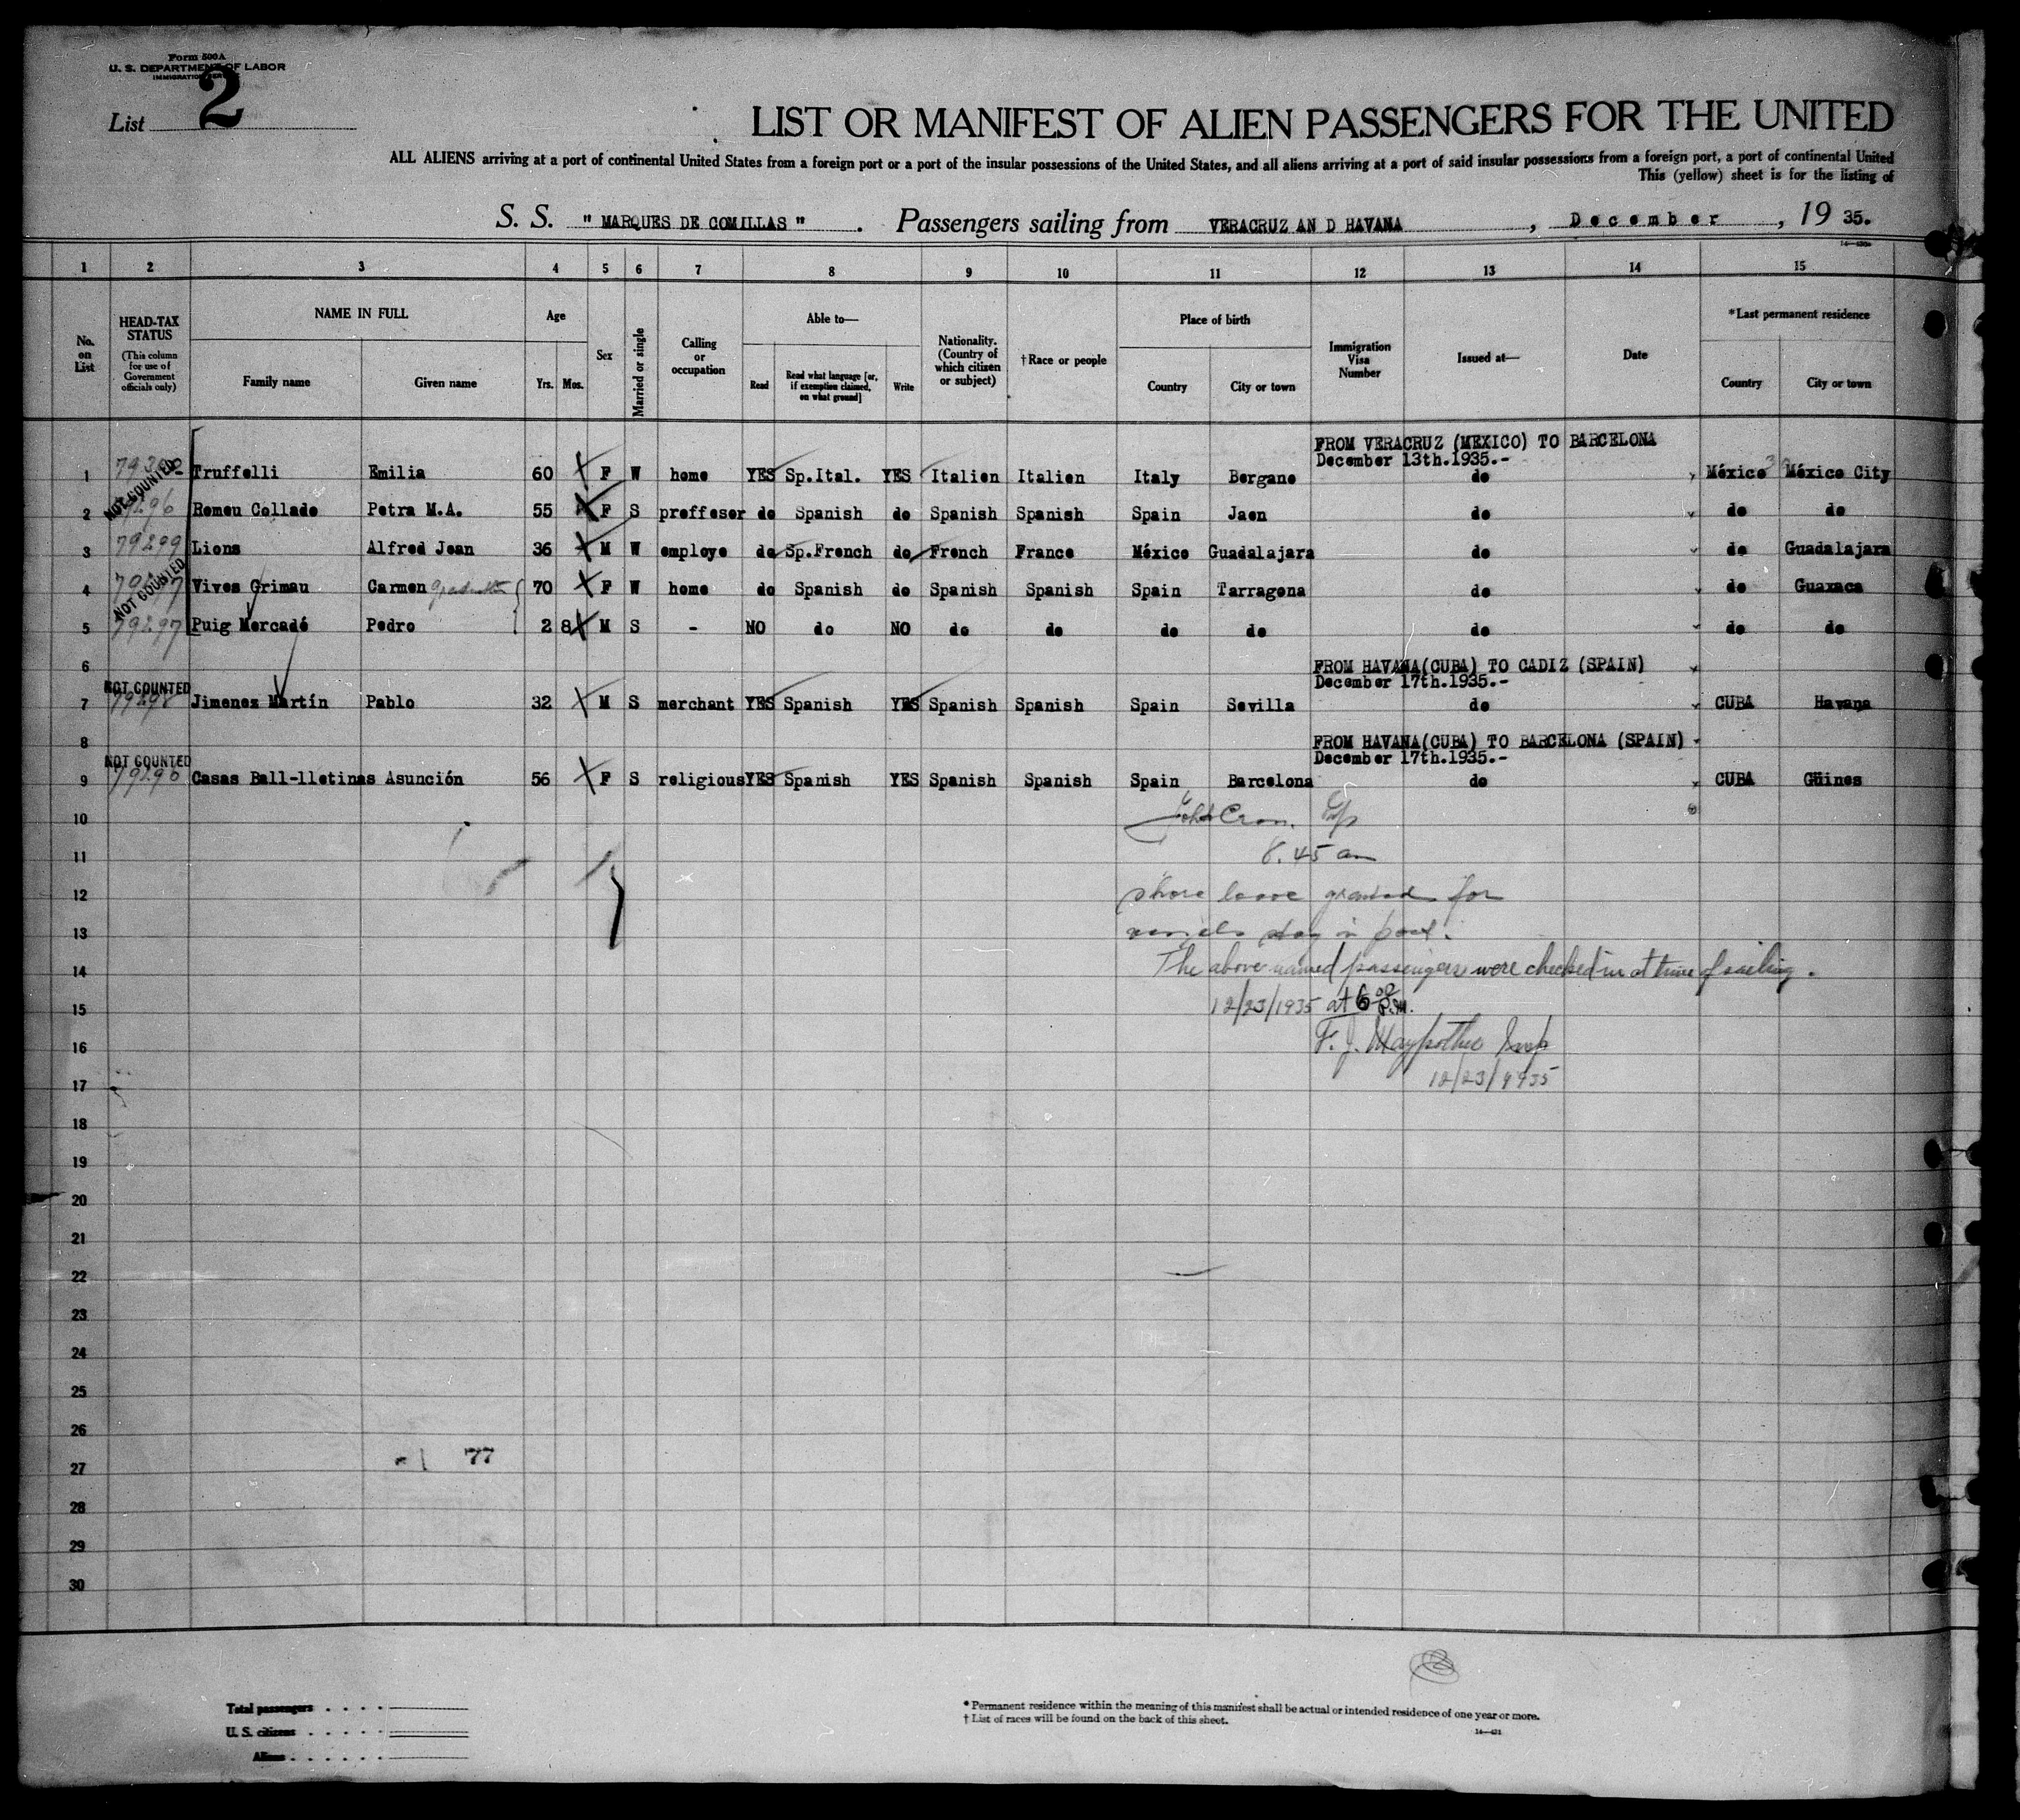 Form 500A
U. S. DEPARTMENT OF LABOR
List 2
LIST OR MANIFEST OF ALIEN PASSENGERS FOR THE UNITED
ALL ALIENS arriving at a port of continental United States from a foreign port or a port of the insular possessions of the United States, and all aliens arriving at a port of said insular possessions from a foreign port, a port of continental United
This (yellow) sheet is for the listing of
S. S. " MARQUES DE COMILLAS ". Passengers sailing from VERACRUZ AN D HAVANA, December, 19 35.
1 2 3 4 5 6 7 8 9 10 11 12 13 14 15
No. on List HEAD-TAX STATUS (This column for use of Government officials only) NAME IN FULL Family name Given name Age Yrs. Mos. Sex Married or single Calling or occupation Able to— Read Read what language [or, if exemption claimed, on what ground] Write Nationality. (Country of which citizen or subject) †Race or people Place of birth Country City or town Immigration Visa Number Issued at— Date *Last permanent residence Country City or town
FROM VERACRUZ (MEXICO) TO BARCELONA
December 13th.1935.-
1 NOT COUNTED Truffelli Emilia 60 F W home YES Sp.Ital. YES Italien Italien Italy Bergano do México México City
2 79296 Romeu Collado Petra M.A. 55 F S proffesor do Spanish do Spanish Spanish Spain Jaen do do do
3 79299 Lions Alfred Jean 36 M W employe do Sp.French do French France México Guadalajara do do Guadalajara
4 NOT COUNTED Vives Grimau Carmen 70 F W home do Spanish do Spanish Spanish Spain Tarragona do do Guaxaca
5 79297 Puig Mercadé Pedro 2 8 M S - NO do NO do do do do do do do
6 FROM HAVANA(CUBA) TO CADIZ (SPAIN)
December 17th.1935.-
7 NOT COUNTED 79298 Jimenez Martín Pablo 32 M S merchant YES Spanish YES Spanish Spanish Spain Sevilla do CUBA Havana
8 FROM HAVANA(CUBA) TO BARCELONA (SPAIN)
December 17th.1935.-
9 NOT COUNTED Casas Ball-lletinas Asunción 56 F S religious YES Spanish YES Spanish Spanish Spain Barcelona do CUBA Güines
10
11 8.45 am
12 shore leave granted for
13 vessels stay in port.
14 The above named passengers were checked in at time of sailing.
15 12/23/1935 at 6 00 P.M.
16 F. J. Insp
17 12/23/1935
18
19
20
21
22
23
24
25
26
27 77
28
29
30
Total passengers
U. S. citizens
Aliens
* Permanent residence within the meaning of this manifest shall be actual or intended residence of one year or more.
† List of races will be found on the back of this sheet.
14—421